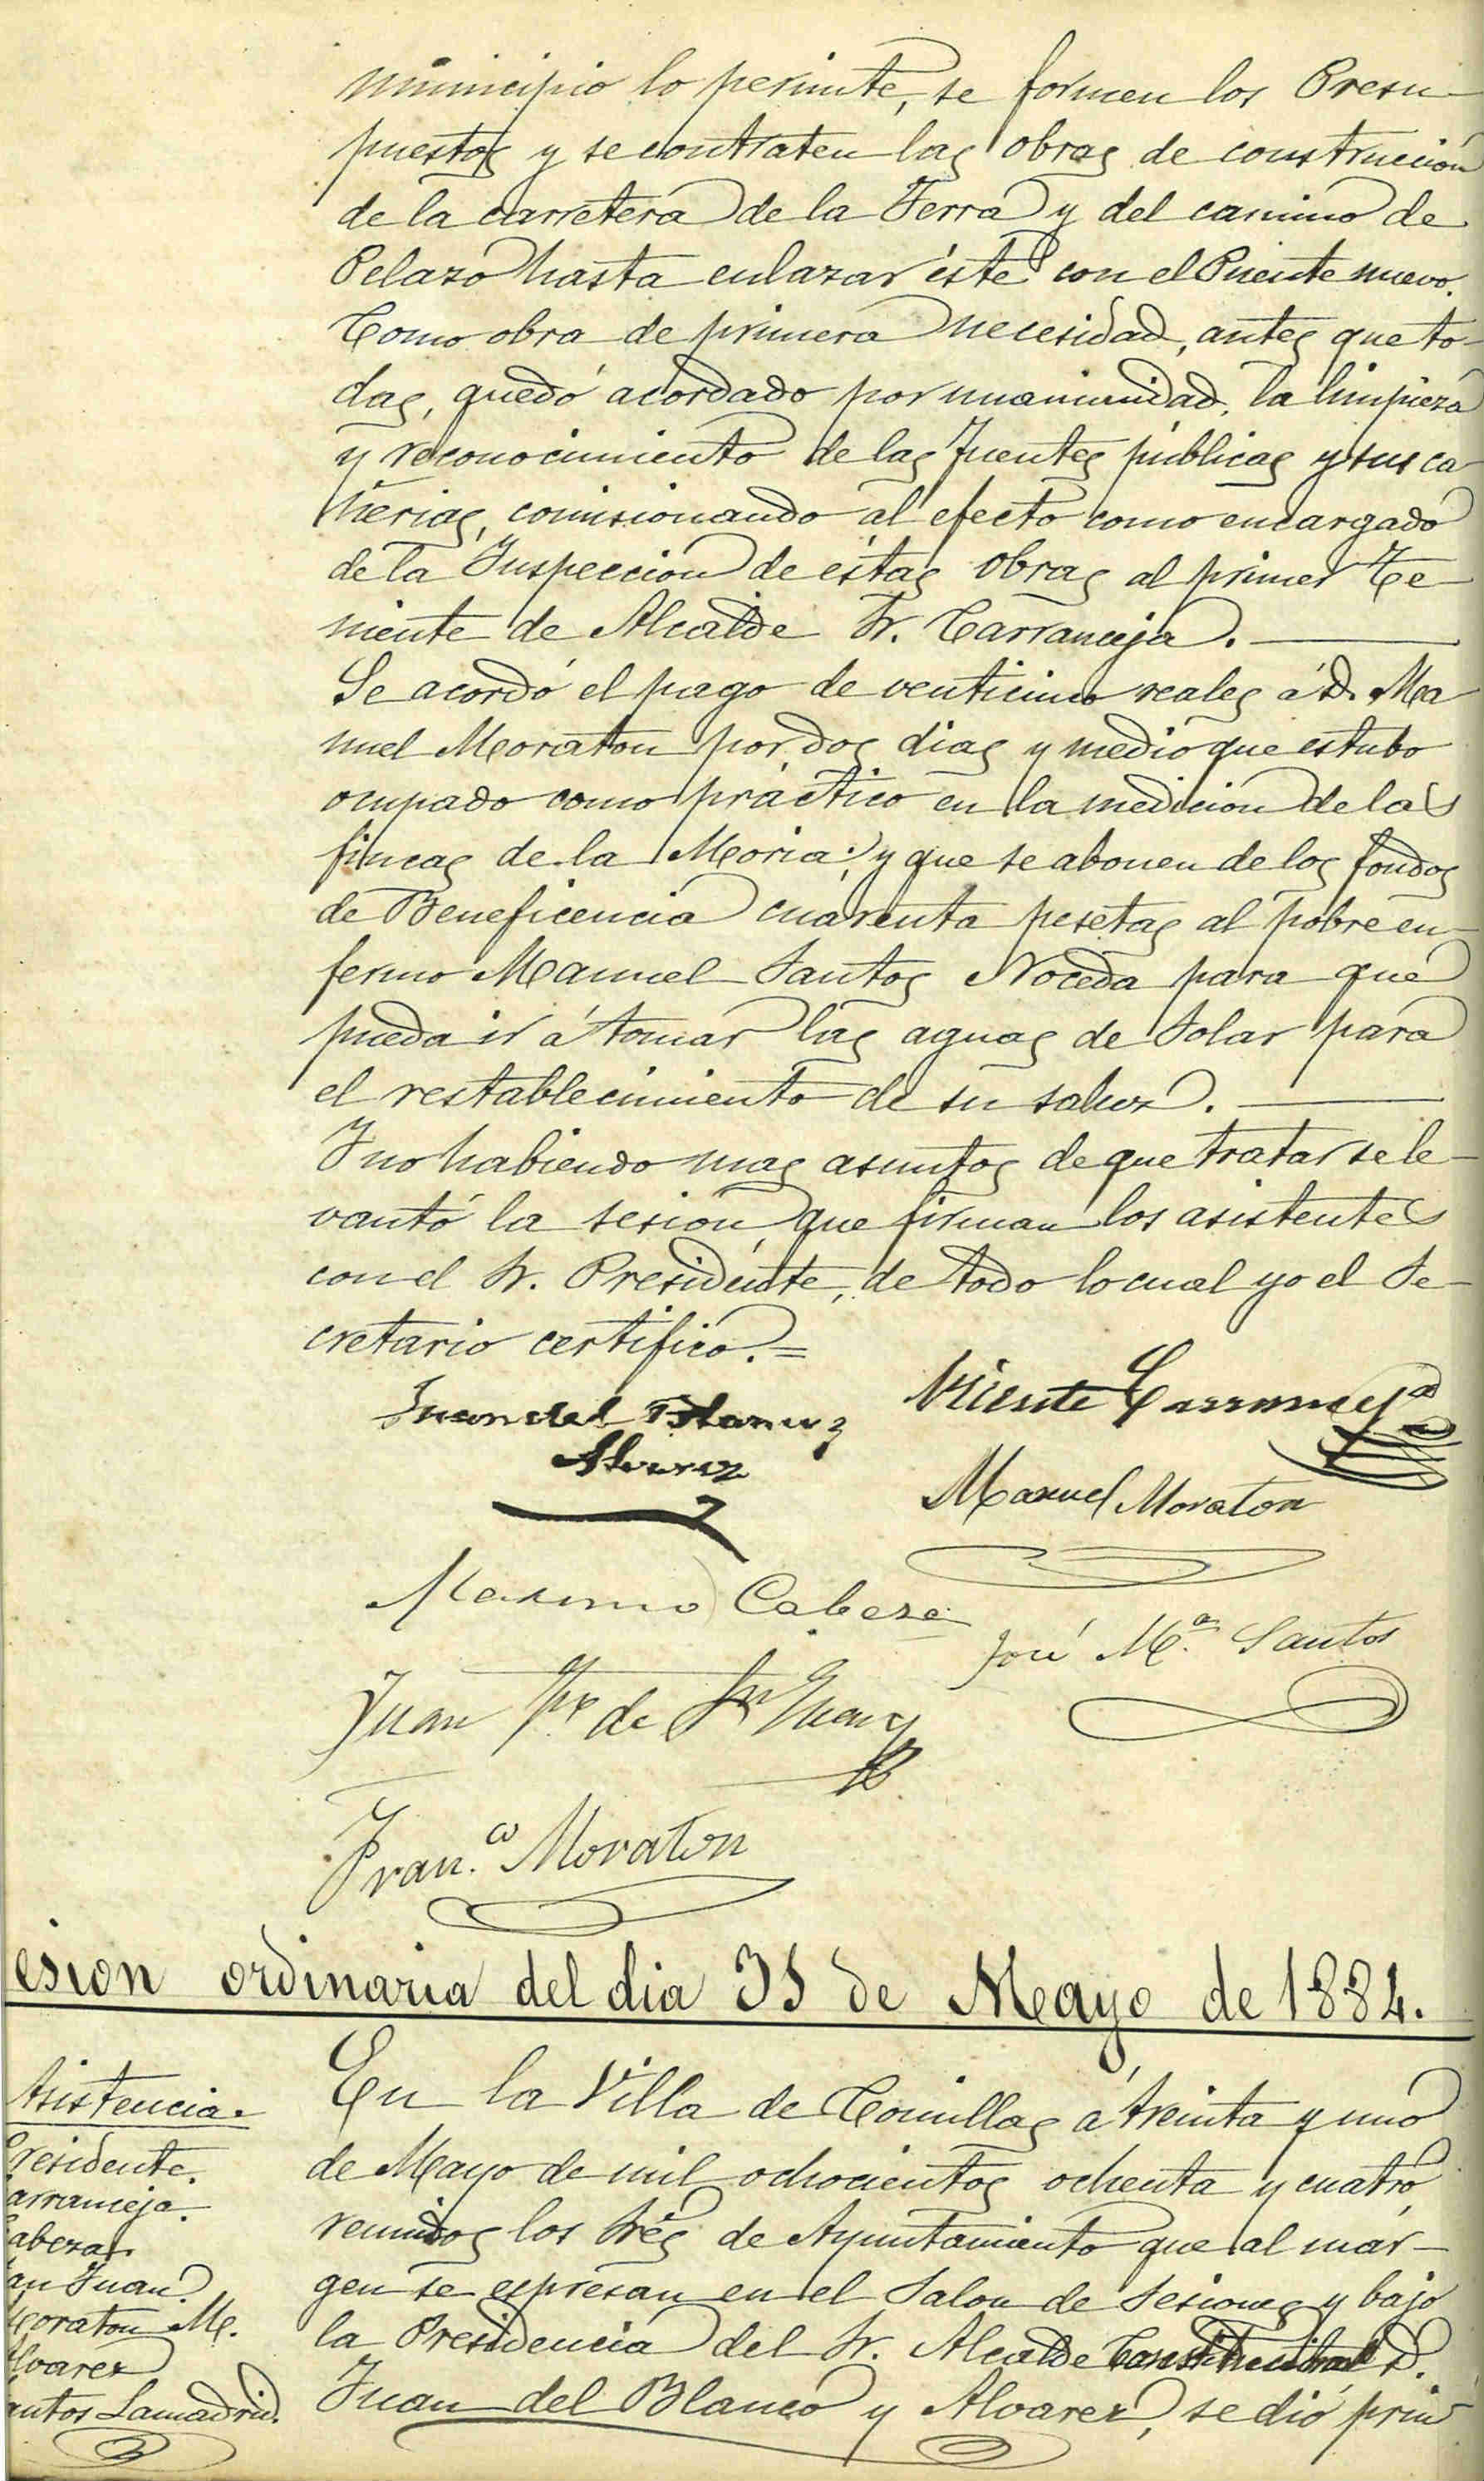 municipio lo permite, se formen los Presu-
puestos y se contraten las obras de construcion
de la carretera de la Ferra y del camino de
Pelazo hasta enlazar éste con el Puente nuevo.
Como obra de primera necesidad, antes que to-
das, quedó acordado por unanimidad, la limpieza
y reconocimiento de las fuentes públicas y sus ca-
ñerias, comisionando al efecto como encargado
de la Inspeccion de éstas obras al primer Te-
niente de Alcalde Sr. Carranceja.
Se acordó el pago de venticinco reales á D. Ma
nuel Moraton por dos dias y medio que estubo
ocupado como práctico en la medicion de las
fincas de la Moria; y que se abonen de los fondos
de Beneficencia cuarenta pesetas al pobre en-
fermo Manuel Santos Noceda para que
pueda ir á tomar las aguas de Solar para
el restablecimiento de su saluz.
Y no habiendo mas asuntos de que tratar se le-
vantó la sesion, que firman los asistentes
con el Sr. Presidente, de todo lo cual yo el Se-
cretario certifico.=
Juan del Blanco y
Alvarez
Vicente Carranceja
Manuel Moraton
Maximo Cabeza
José Mª. Santos
Juan de Sn Juan
Fran.co Moraton
esion ordinaria del dia 31 de Mayo de 1884.
Asistencia.
Presidente.
arranceja.
abeza.
an Juan.
Moraton M.
Alvarez
antos Lamadrid.
En la Villa de Comillas á treinta y uno
de Mayo de mil ochocientos ochenta y cuatro,
reunidos los Sres de Ayuntamiento que al mar-
gen se espresan en el Salon de Sesiones y bajo
la Presidencia del Sr. Alcalde Constitucional D.
Juan del Blanco y Alvarez, se dió prin